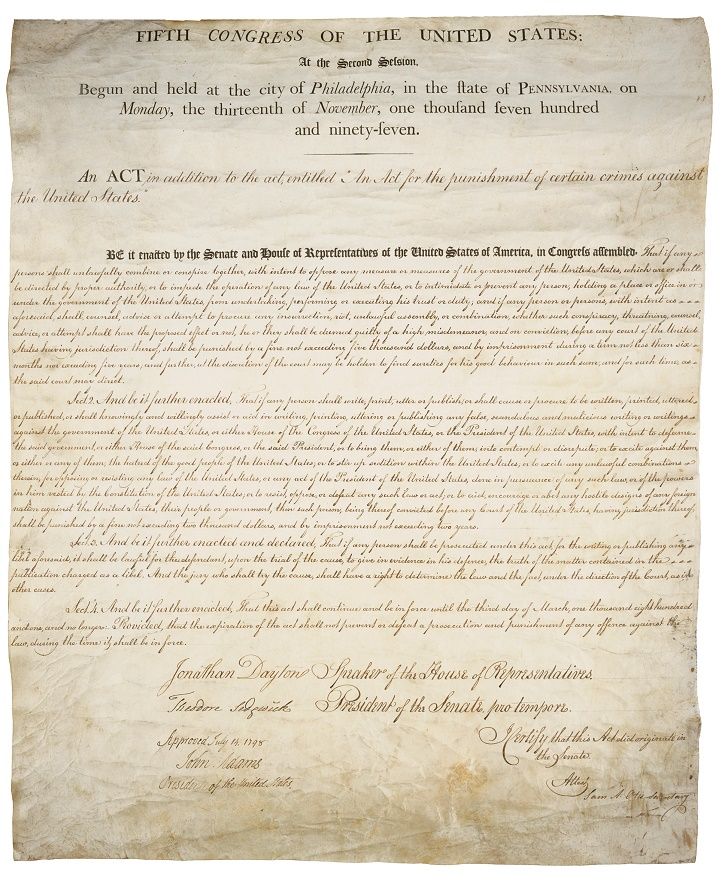 FIFTH CONGRESS OF THE UNITED STATES:
At the Second Session,
Begun and held at the city of Philadelphia, in the state of PENNSYLVANIA, on
Monday, the thirteenth of November, one thousand seven hundred
and ninety-seven.
An ACT in addition to the act, entitled "An Act for the punishment of certain crimes against
the United States."
BE it enacted by the Senate and House of Representatives of the United States of America, in Congress assembled, That if any
persons shall unlawfully combine or conspire together, with intent to oppose any measure or measures of the government of the United States, which are or shall
be directed by proper authority, or to impede the operation of any law of the United States, or to intimidate or prevent any person, holding a place or office in or
under the government of the United States, from undertaking, performing or executing his trust or duty; and if any person or persons, with intent as
aforesaid, shall counsel, advise or attempt to procure any insurrection, riot, unlawful assembly, or combination, whether such conspiracy, threatning, counsel,
advice, or attempt shall have the proposed effect or not, he or they shall be deemed guilty of a high misdemeanor, and on conviction before any court of the United
States having jurisdiction thereof, shall be punished by a fine not exceeding five thousand dollars, and by imprisonment during a term not less than six
months nor exceeding five years; and further, at the discretion of the court may be holden to find sureties for his good behaviour in such sum, and for such time, as
the said court may direct.
Sect. 2. And be it further enacted, That if any person shall write, print, utter or publish, or shall cause or procure to be written, printed, uttered
or published, or shall knowingly and willingly assist or aid in writing, printing, uttering or publishing any false, scandalous and malicious writing or writings
against the government of the United States, or either House of the Congress of the United States, or the President of the United States, with intent to defame
the said government, or either House of the said Congress, or the said President, or to bring them, or either of them, into contempt or disrepute; or to excite against them,
or either or any of them, the hatred of the good people of the United States, or to stir up sedition within the United States, or to excite any unlawful combinations
therein, for opposing or resisting any law of the United States, or any act of the President of the United States, done in pursuance of any such law, or of the powers
in him vested by the Constitution of the United States, or to resist, oppose, or defeat any such law or act, or to aid, encourage or abet any hostile designs of any foreign
nation against the United States, their people or government, then such person, being thereof convicted before any Court of the United States, having jurisdiction thereof,
shall be punished by a fine not exceeding two thousand dollars, and by imprisonment not exceeding two years.
Sect. 3. And be it further enacted and declared, That if any person shall be prosecuted under this act, for the writing or publishing any
libel aforesaid, it shall be lawful for the defendant, upon the trial of the cause, to give in evidence in his defence, the truth of the matter contained in the
publication charged as a libel. And the jury who shall try the cause, shall have a right to determine the law and the fact, under the direction of the Court, as in
other cases.
Sect. 4. And be it further enacted, That this act shall continue and be in force until the third day of March, one thousand eight hundred
and one, and no longer: Provided, that the expiration of the act shall not prevent or defeat a prosecution and punishment of any offence against the
law, during the time it shall be in force.
Jonathan Dayton Speaker of the House of Representatives.
Theodore Sedgwick President of the Senate, pro tempore.
Approved July 14, 1798
John Adams
President of the United States.
I Certify that this Act did originate in
the Senate.
Attest,
Sam A. Otis Secretary